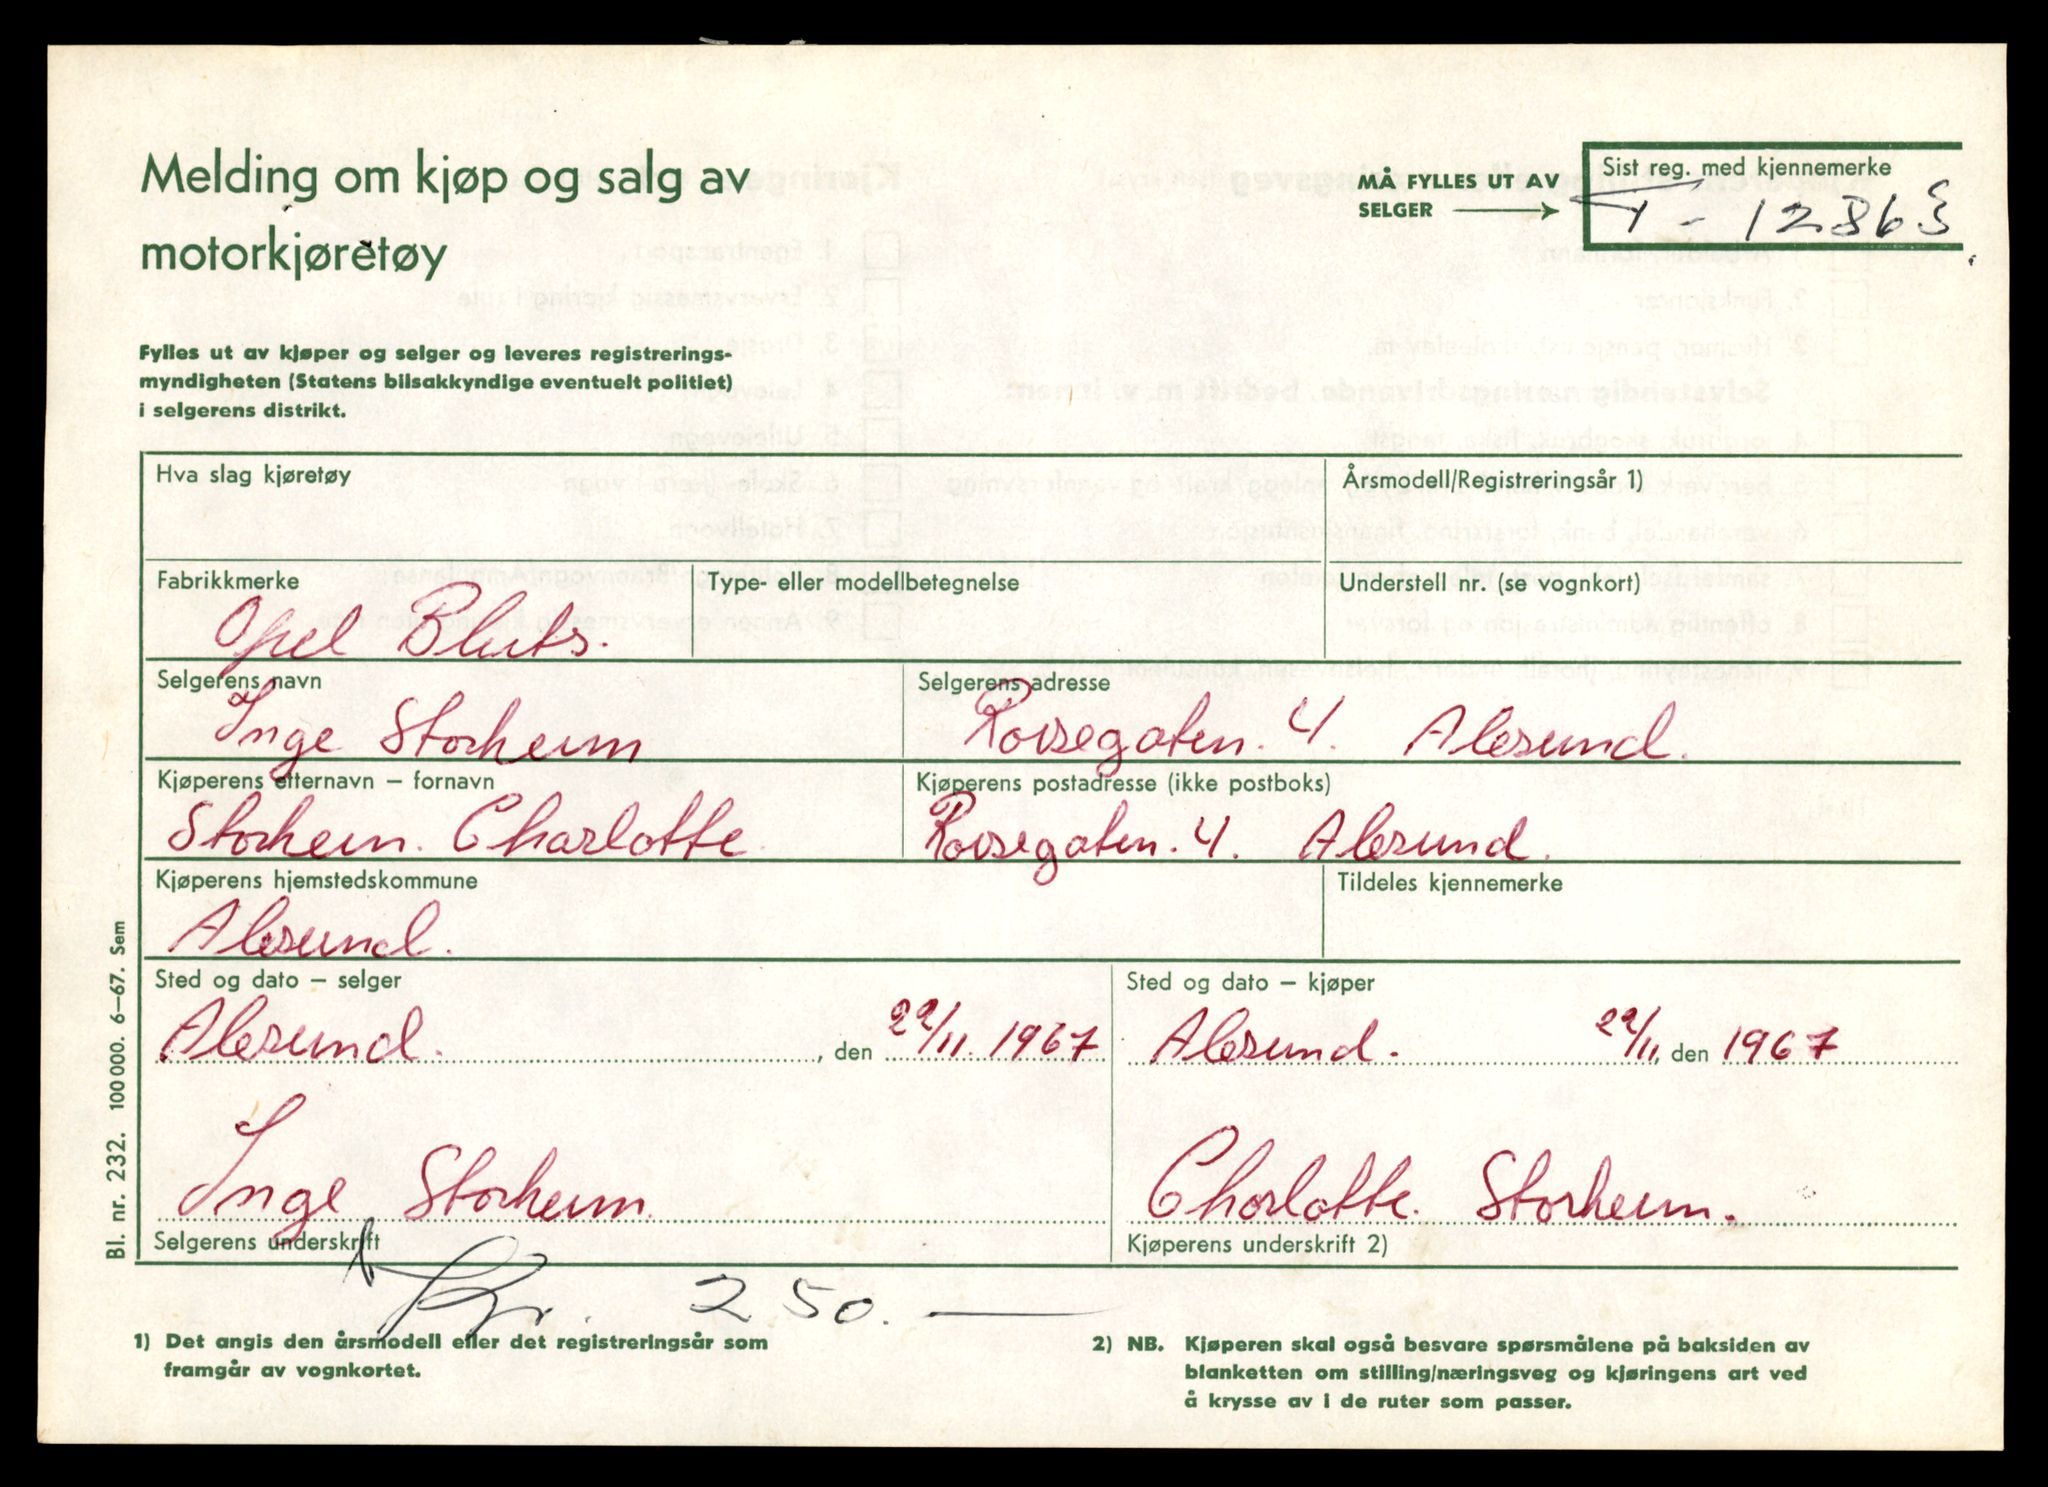 Melding om kjøp og salg av
motorkjøretøy
MÅ FYLLES UT AV
SELGER
Sist reg. med kjennemerke
T - 12863
Fylles ut av kjøper og selger og leveres registrerings-
myndigheten (Statens bilsakkyndige eventuelt politiet)
i selgerens distrikt.
Hva slag kjøretøy
Årsmodell/Registreringsår 1)
Fabrikkmerke
Type- eller modellbetegnelse
Understell nr. (se vognkort)
Opel Bluts.
Selgerens navn
Selgerens adresse
Inge Storheim
Rovsegaten. 4. Alesund.
Kjøperens etternavn – fornavn
Kjøperens postadresse (ikke postboks)
Storheim. Charlotte.
Rovsegaten. 4. Alesund.
Kjøperens hjemstedskommune
Tildeles kjennemerke
Alesund.
Sted og dato – selger
Sted og dato – kjøper
Alesund. , den 22/11. 1967
Alesund. 22/11, den 1967
Inge Storheim
Charlotte. Storheim.
Selgerens underskrift
Kjøperens underskrift 2)
Kr. 250.—
1) Det angis den årsmodell eller det registreringsår som
framgår av vognkortet.
2) NB. Kjøperen skal også besvare spørsmålene på baksiden av
blanketten om stilling/næringsveg og kjøringens art ved
å krysse av i de ruter som passer.
Bl. nr. 232. 100 000. 6–67. Sem